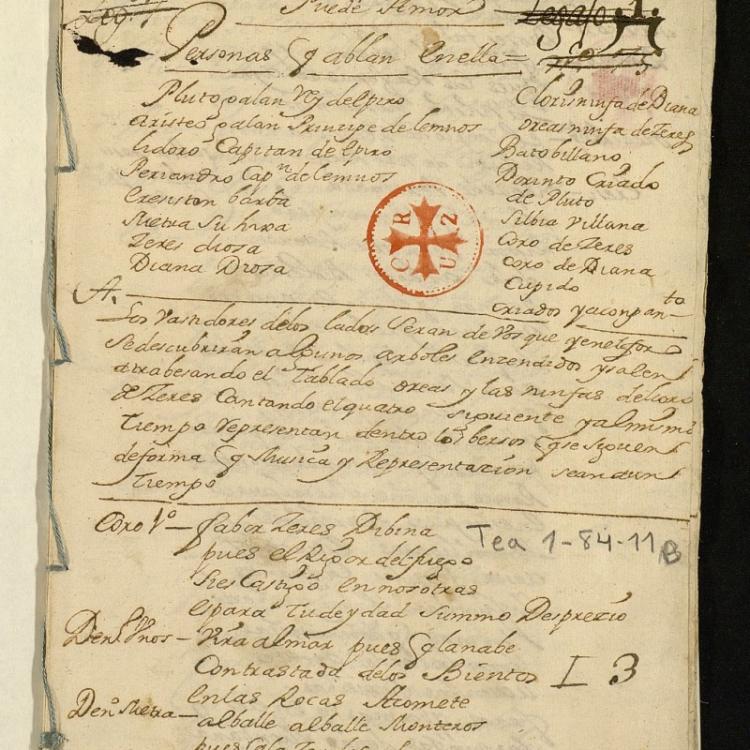 Leg. 7
Puede Amor
Legajo 1.
Personas q ablan en ella =
Pluto galan Rey del Epiro
Aristeo galan Principe de lemnos
Lidoro Capitan de Epiro
Periandro Capn de lemnos
Eresiton barba
Metra Su hixa
Zeres diosa
Diana Diosa
Cloris ninfa de Diana
Oreas ninfa de Zeres
Bato billano
Dorinto Criado
de Pluto
Silbia Villana
Coro de Zeres
Coro de Diana
Cupido
Criados y acompanto
CRUZ
Los Vastidores de los lados Seran de Vosque y en el foro
Se descubriràn algunos arboles enzendidos y salen
atrabesando el Tablado oreas y las ninfas del coro
de Zeres Cantando el quatro siguiente y al mismo
Tiempo Representan dentro los bersos q se siguen
de forma q Musica y Representacion sean a un
Tiempo
Coro 1º — fabor Zeres Dibina
pues el Rigor del fuego
Si es Castigo en nosotras
es para Tu deydad Summo Desprezio
Tea 1-84-11 B
Denº Unos — Vira al mar pues q la nabe
Contrastada de los Bientos
I 3
en las Rocas Acomete
Denº Metra — al balle al balle Monteros